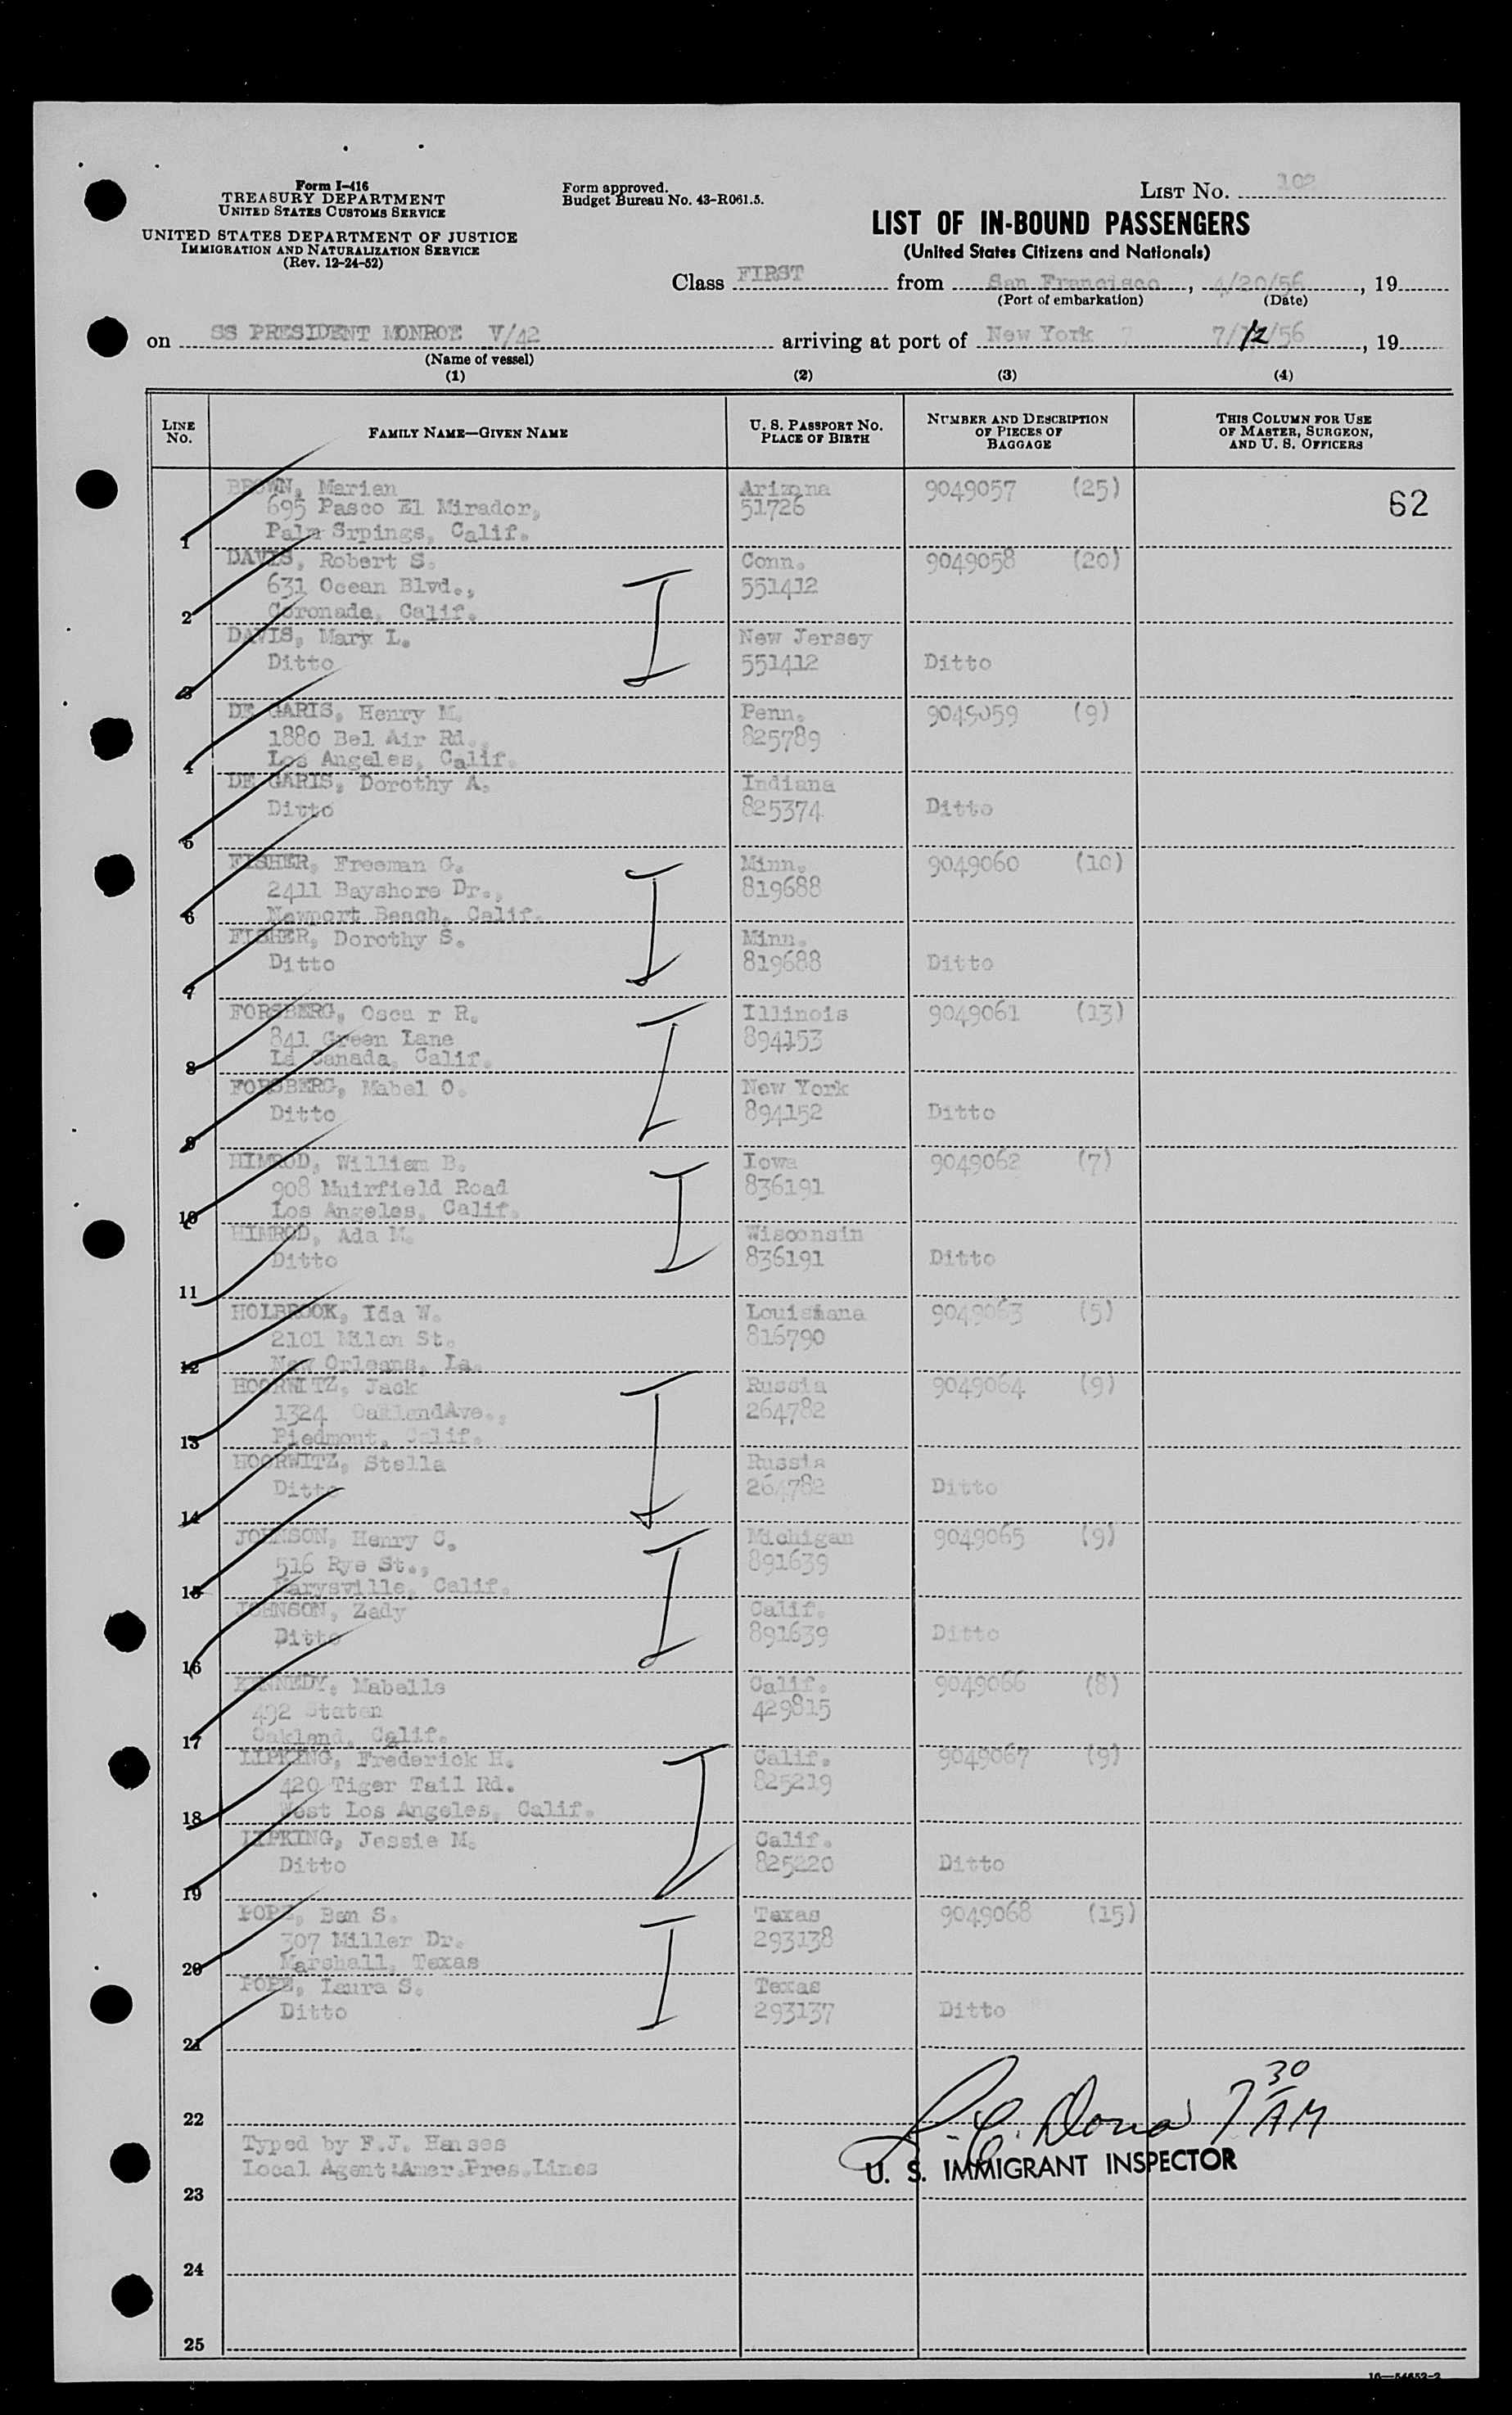 Form I-416
TREASURY DEPARTMENT
UNITED STATES CUSTOMS SERVICE
UNITED STATES DEPARTMENT OF JUSTICE
IMMIGRATION AND NATURALIZATION SERVICE
(Rev. 12-24-52)
Form approved.
Budget Bureau No. 43-R061.5.
LIST NO. 102
LIST OF IN-BOUND PASSENGERS
(United States Citizens and Nationals)
Class FIRST from San Francisco, 4/20/56, 19
(Port of embarkation) (Date)
on SS PRESIDENT MONROE V/42 arriving at port of New York 7/12/56, 19
(Name of vessel)
(1) (2) (3) (4)
LINE NO. FAMILY NAME—GIVEN NAME U. S. PASSPORT NO. PLACE OF BIRTH NUMBER AND DESCRIPTION OF PIECES OF BAGGAGE THIS COLUMN FOR USE OF MASTER, SURGEON, AND U. S. OFFICERS
BROWN, Marian Arizona 9049057 (25) 62
695 Paseo El Mirador, 51726
1 Palm Srpings, Calif.
DAVIS, Robert S. Conn. 9049058 (20)
631 Ocean Blvd., 551412
2 Coronade, Calif.
DAVIS, Mary L. New Jersey
Ditto 551412 Ditto
3
DE GARIS, Henry M. Penn. 9049059 (9)
1880 Bel Air Rd. 825789
4 Los Angeles, Calif.
DE GARIS, Dorothy A. Indiana
Ditto 825374 Ditto
5
FISHER, Freeman G. Minn. 9049060 (10)
2411 Bayshore Dr., 819688
6 Newport Beach, Calif.
FISHER, Dorothy S. Minn.
Ditto 819688 Ditto
7
FORSBERG, Osca r R. Illinois 9049061 (13)
841 Green Lane 894153
8 La Canada, Calif.
FORSBERG, Mabel O. New York
Ditto 894152 Ditto
9
HIMROD, William B. Iowa 9049062 (7)
908 Muirfield Road 836191
10 Los Angeles, Calif.
HIMROD, Ada M. Wisconsin
Ditto 836191 Ditto
11
HOLBROOK, Ida W. Louisiana 9049063 (5)
2101 Milan St. 816790
12 New Orleans, La.
HOORWITZ, Jack Russia 9049064 (9)
1324 OaklandAve., 264782
13 Piedmont, Calif.
HOORWITZ, Stella Russia
Ditto 264782 Ditto
14
JOHNSON, Henry C. Michigan 9049065 (9)
516 Rye St., 891639
15 Marysville, Calif.
JOHNSON, Zady Calif.
Ditto 891639 Ditto
16
KENNEDY, Mabelle Calif. 9049066 (8)
492 Staten 429815
17 Oakland, Calif.
LIPKING, Frederick H. Calif. 9049067 (9)
420 Tiger Tail Rd. 825219
18 West Los Angeles, Calif.
LIPKING, Jessie M. Calif.
Ditto 825220 Ditto
19
POPE, Ben S. Texas 9049068 (15)
307 Miller Dr. 293138
20 Marshall, Texas
POPE, Laura S. Texas
Ditto 293137 Ditto
21
22
7 30 AM
Typed by F.J. Hanses
Local Agent:Amer.Pres.Lines
U. S. IMMIGRANT INSPECTOR
23
24
25